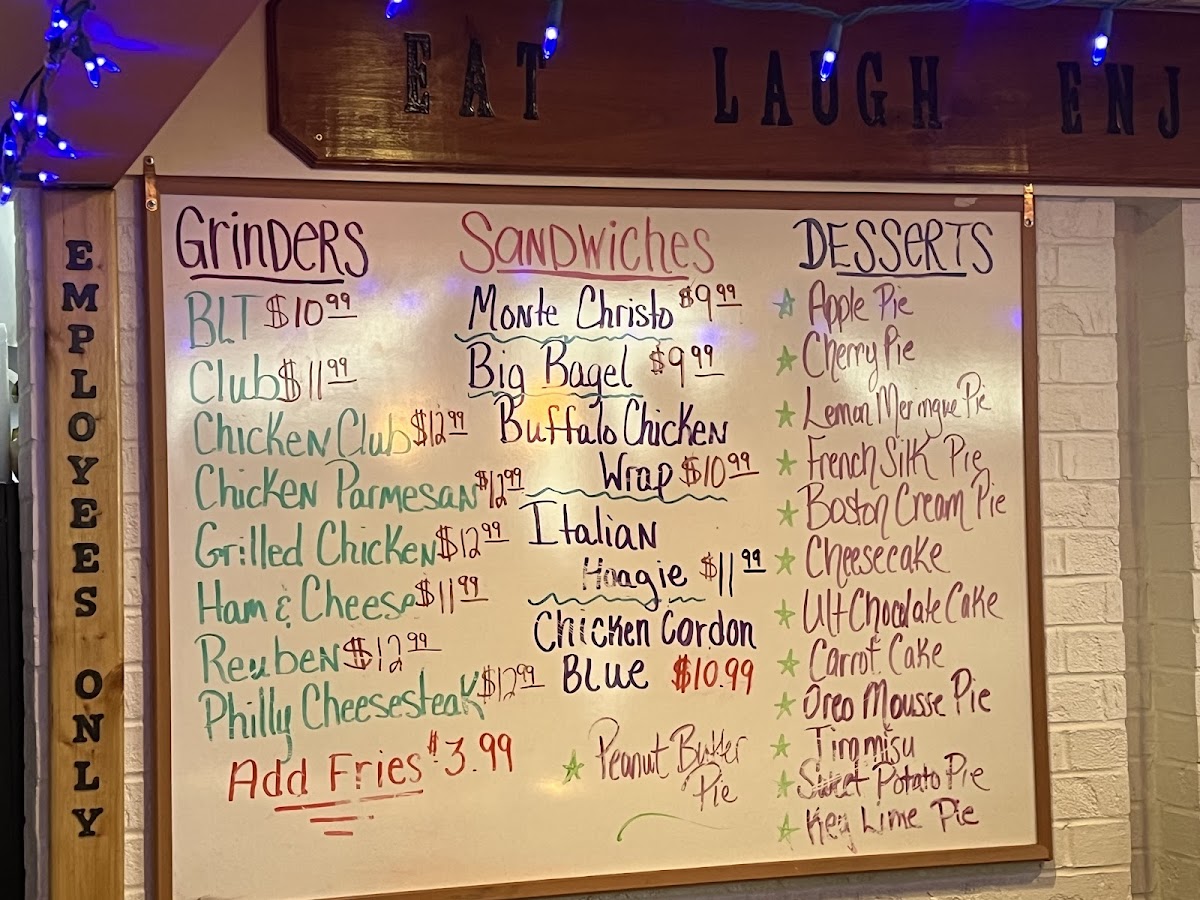 EAT LAUGH ENJ
EMPLOYEES ONLY
Grinders
BLT $10.99
Club $11.99
Chicken Club $12.99
Chicken Parmesan $12.99
Grilled Chicken $12.99
Ham & Cheese $11.99
Reuben $12.99
Philly Cheesesteak $12.99
Add Fries $3.99
Sandwiches
Monte Christo $9.99
Big Bagel $9.99
Buffalo Chicken
Wrap $10.99
Italian
Hoagie $11.99
Chicken Cordon
Blue $10.99
Peanut Butter
Pie
Desserts
Apple Pie
Cherry Pie
Lemon Meringue Pie
French Silk Pie
Boston Cream Pie
Cheesecake
Ult Chocolate Cake
Carrot Cake
Oreo Mousse Pie
Tirimisu
Sweet Potato Pie
Key Lime Pie